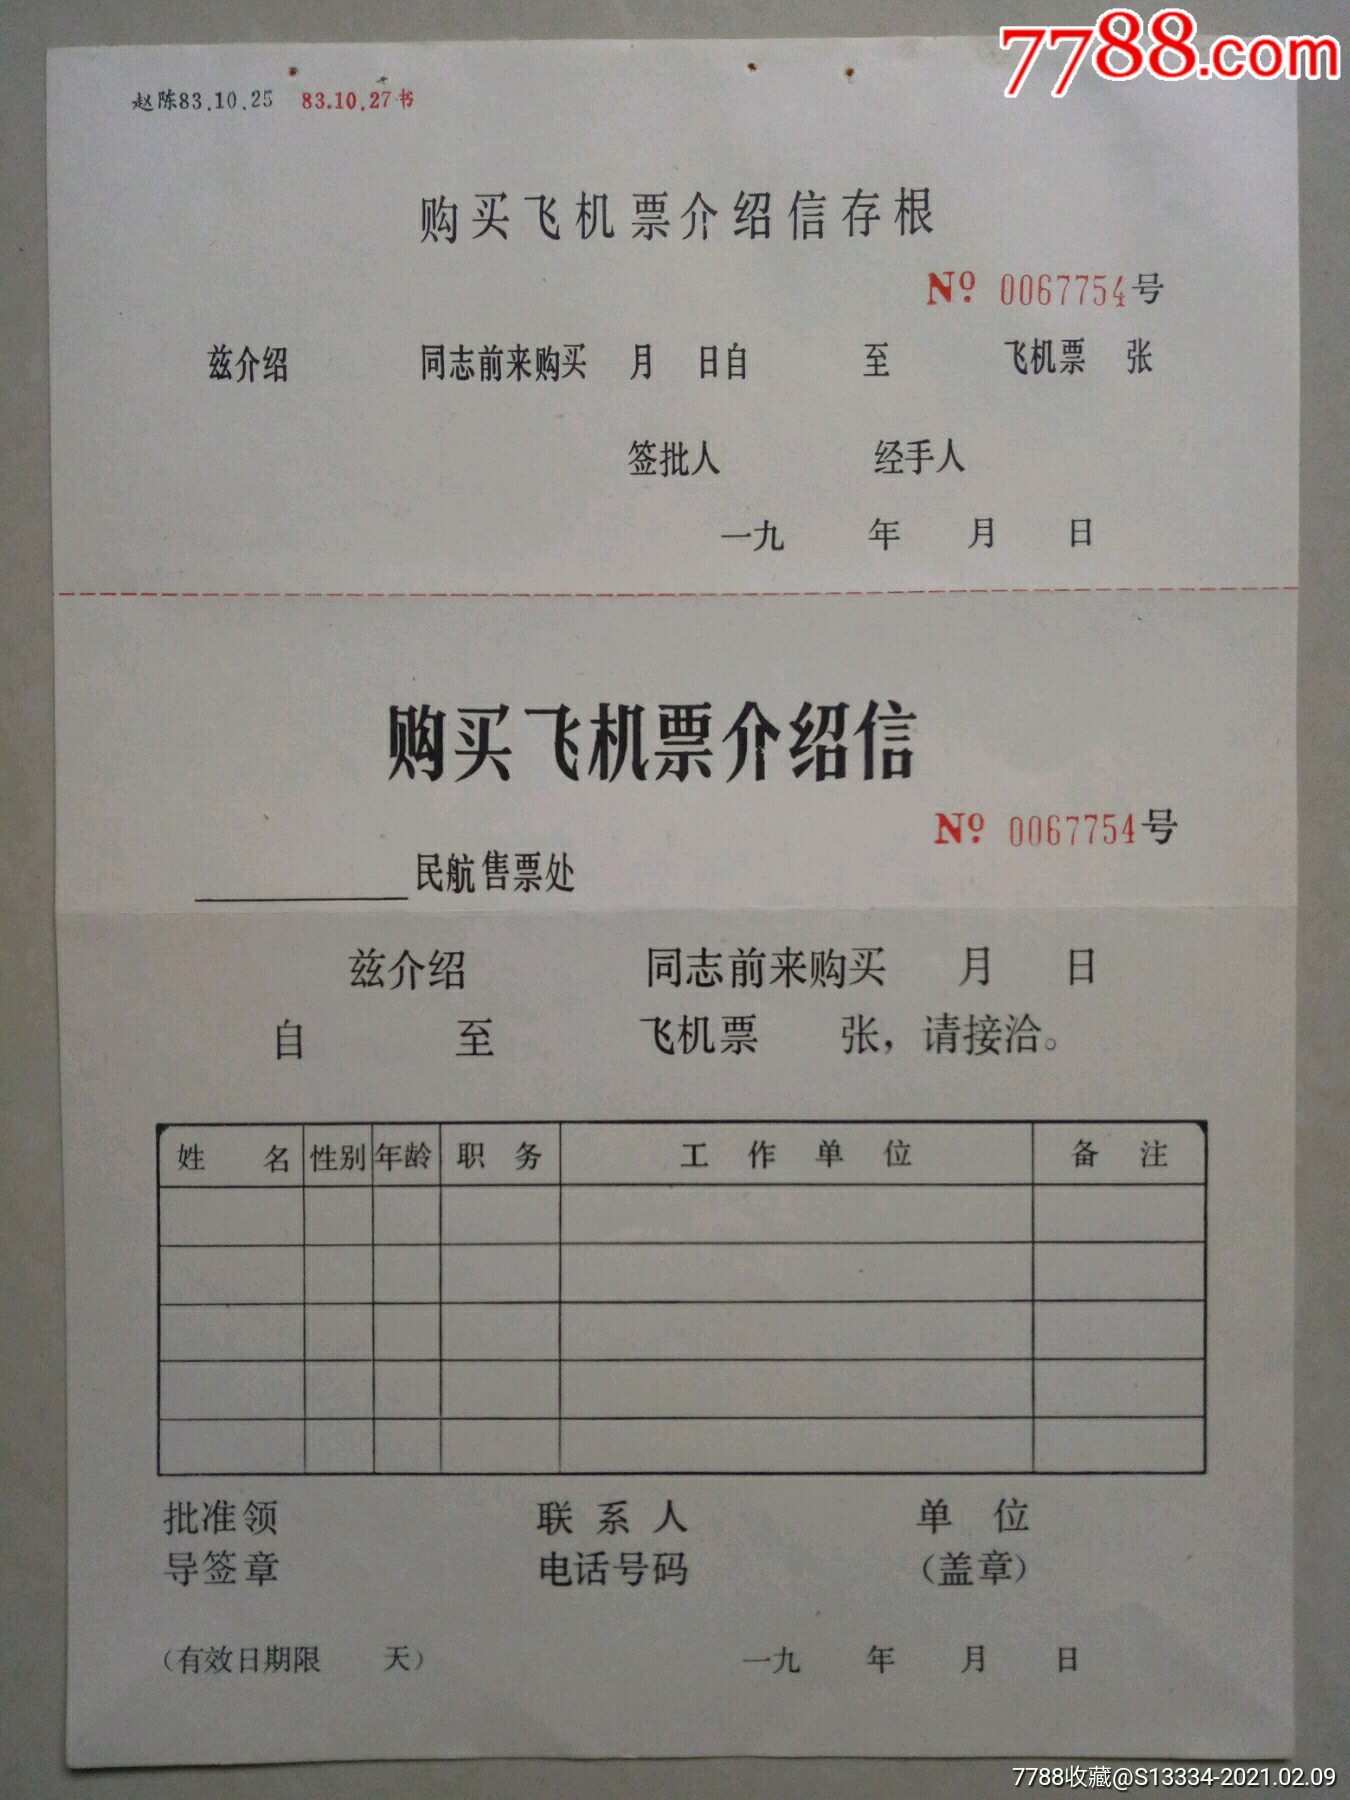 7788.com
赵陈83.10.25 83.10.27书
购买飞机票介绍信存根
Nº 0067754号
兹介绍 同志前来购买 月 日自 至 飞机票 张
签批人 经手人
一九 年 月 日
购买飞机票介绍信
Nº 0067754号
民航售票处
兹介绍 同志前来购买 月 日
自 至 飞机票 张，请接洽。
姓 名 性别 年龄 职 务 工 作 单 位 备 注
批准领 联 系 人 单 位
导签章 电话号码 （盖章）
（有效日期限 天） 一九 年 月 日
7788收藏@S13334-2021.02.09